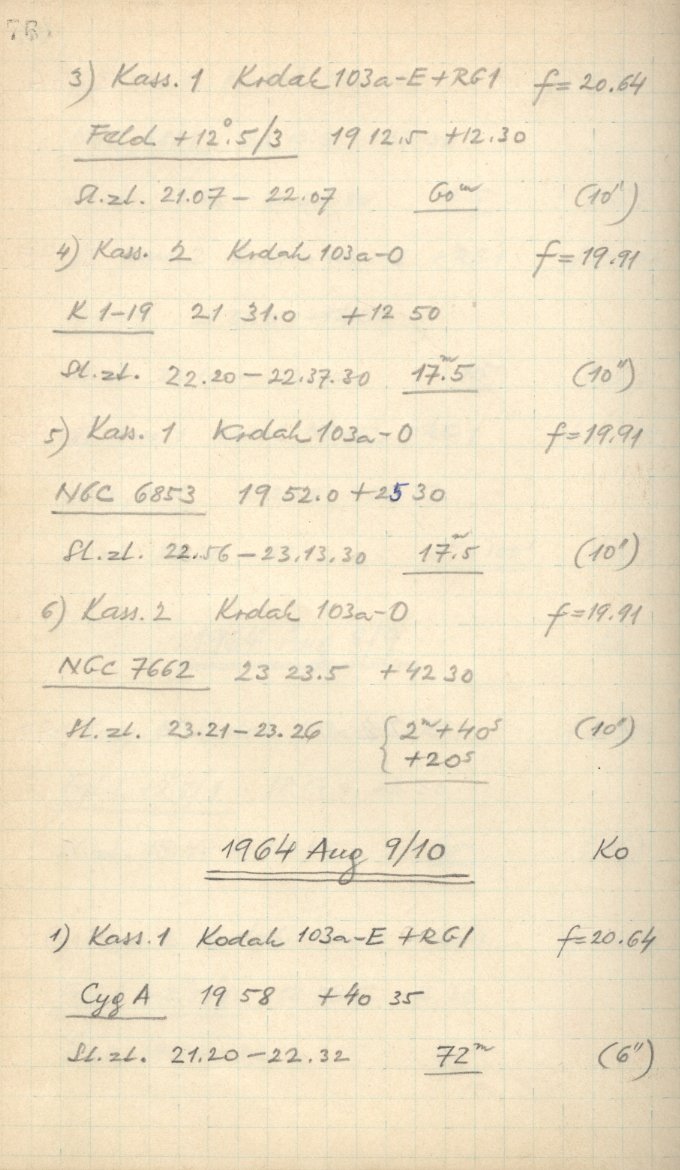 76
3) Kass. 1 Kodak 103a-E+RG1 f=20.64
Feld +12°.5/3 19 12.5 +12.30
St.zt. 21.07 – 22.07 60ᵐ (10")
4) Kass. 2 Kodak 103a-O f=19.91
K 1-19 21 31.0 +12 50
St.zt. 22.20 – 22.37.30 17ᵐ.5 (10")
5) Kass. 1 Kodak 103a-O f=19.91
NGC 6853 19 52.0 +25 30
St.zt. 22.56 – 23.13.30 17ᵐ.5 (10")
6) Kass. 2 Kodak 103a-O f=19.91
NGC 7662 23 23.5 +42 30
St.zt. 23.21 – 23.26 { 2ᵐ+40ˢ (10")
+20ˢ
1964 Aug 9/10 Ko
1) Kass. 1 Kodak 103a-E +RG1 f=20.64
Cyg A 19 58 +40 35
St.zt. 21.20 – 22.32 72ᵐ (6")